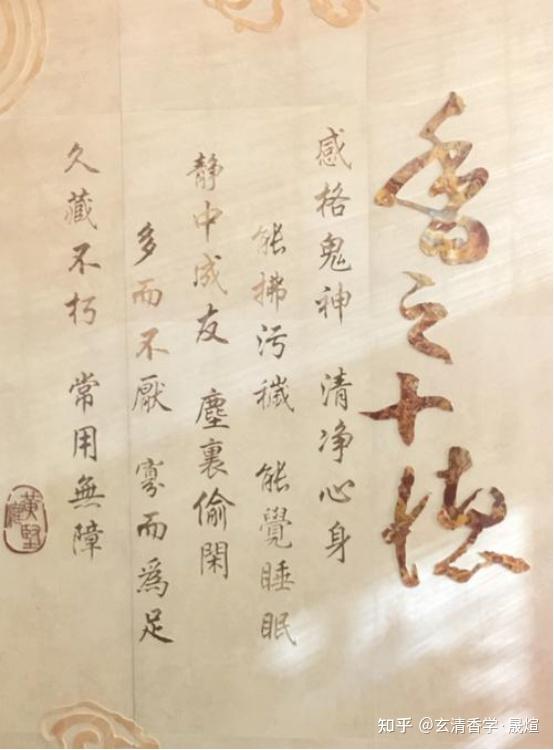 香之十德
感格鬼神 清净心身
能拂污穢 能覺睡眠
静中成友 塵裏偷閑
多而不厭 寡而爲足
久藏不朽 常用無障
知乎 @玄清香学·晟煊